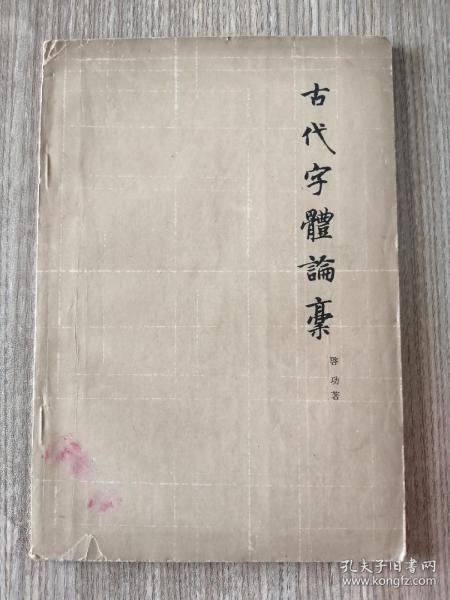 古代字體論稾
啓功著
孔夫子旧书网
www.kongfz.com